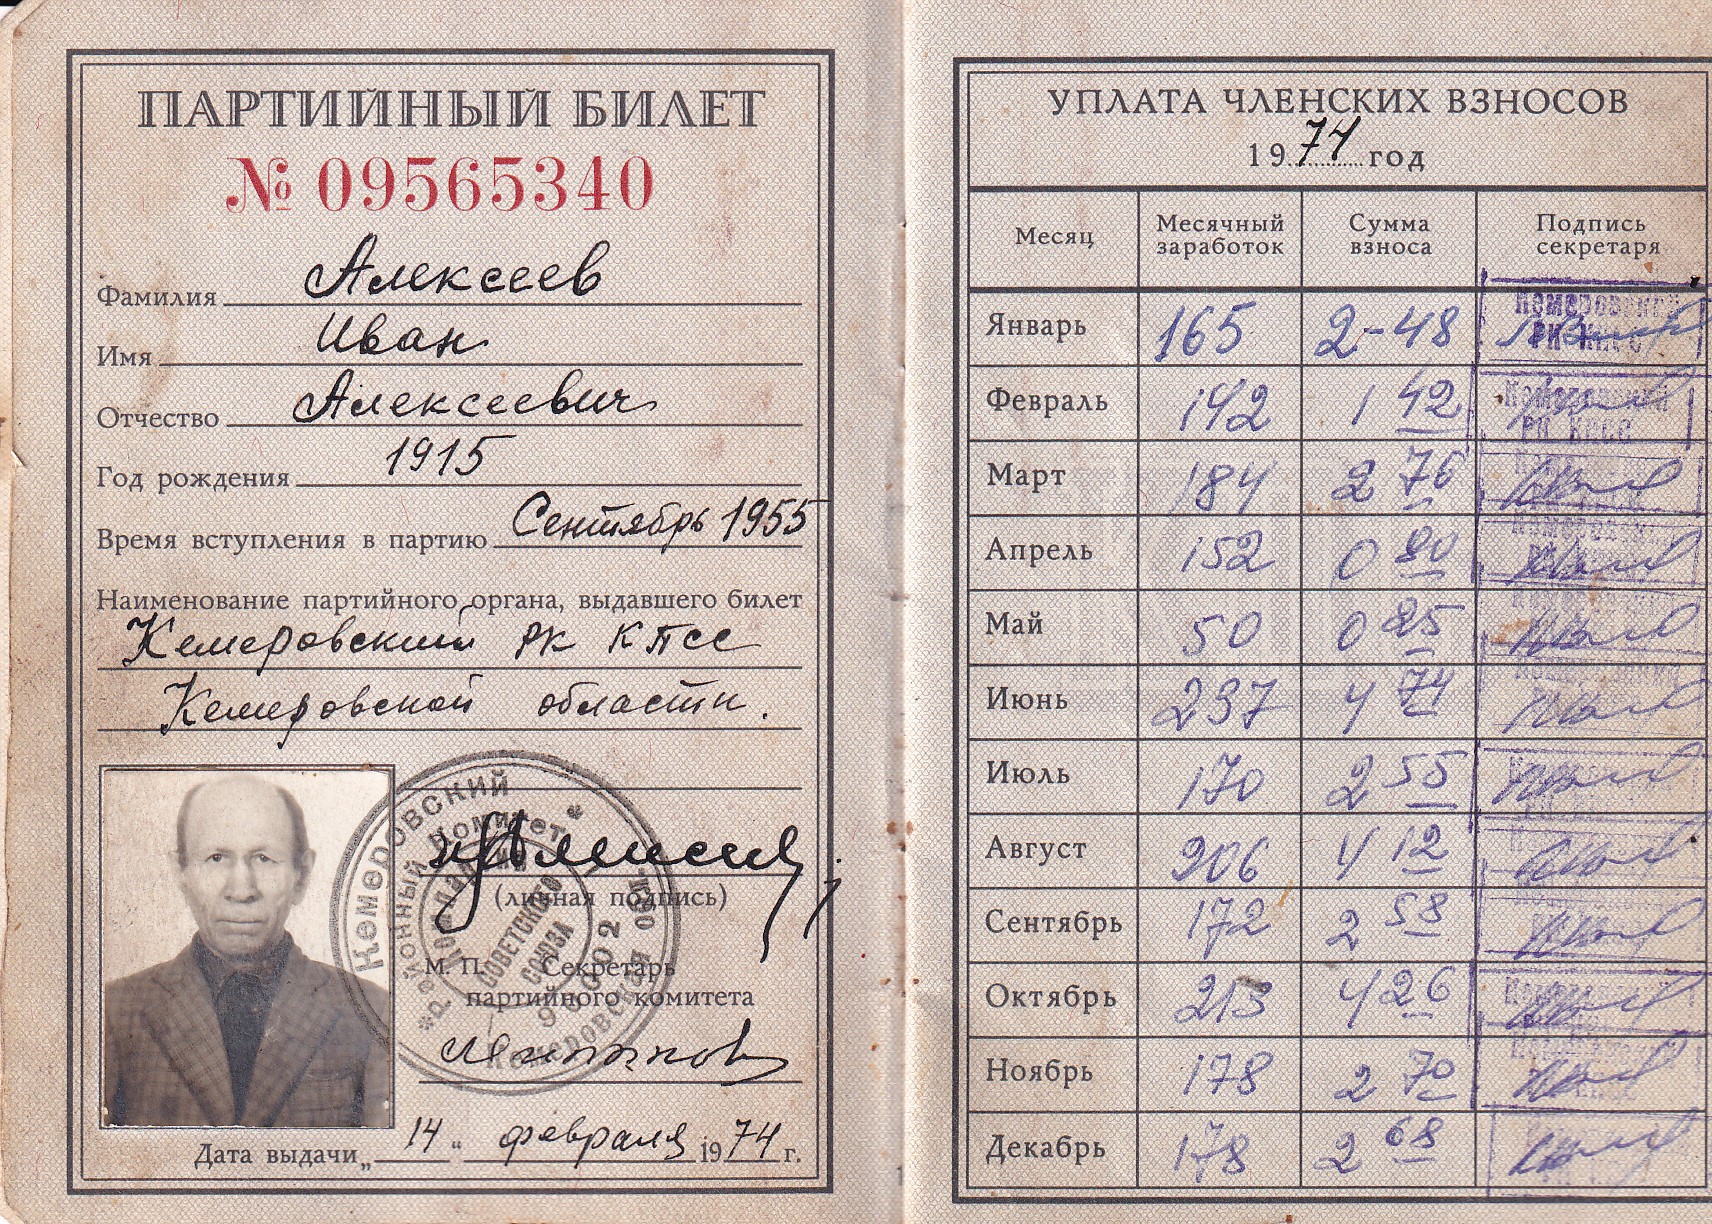 ПАРТИЙНЫЙ БИЛЕТ
№ 09565340
Фамилия Алексеев
Имя Иван
Отчество Алексеевич
Год рождения 1915
Время вступления в партию Сентябрь 1955
Наименование партийного органа, выдавшего билет
Кемеровский РК КПСС
Кемеровской области.
(личная подпись)
М. П. Секретарь
партийного комитета
Дата выдачи „14“ февраля 1974 г.
Кемеровский
районный комитет
СОВЕТСКОГО
СОЮЗА
Кемеровская обл.
УПЛАТА ЧЛЕНСКИХ ВЗНОСОВ
1974 год
Месяц Месячный заработок Сумма взноса Подпись секретаря
Январь 165 2-48
Февраль 142 1 42
Март 184 2 76
Апрель 152 0 80
Май 50 0 25
Июнь 237 4 74
Июль 170 2 55
Август 206 4 12
Сентябрь 172 2 58
Октябрь 213 4 26
Ноябрь 178 2 70
Декабрь 178 2 68
Кемеровский
РК КПСС